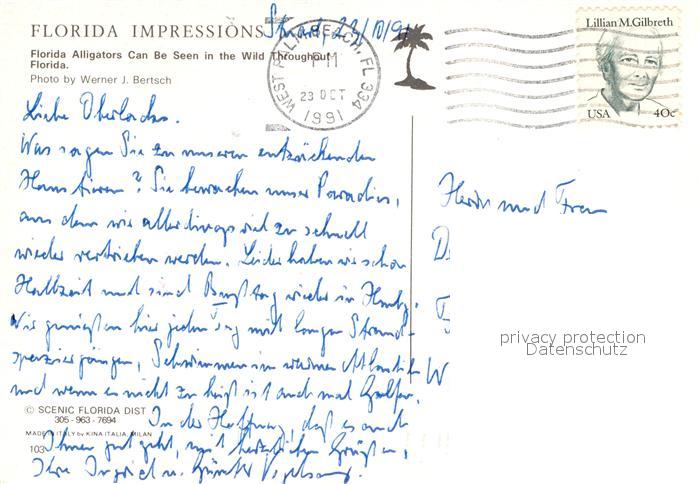 FLORIDA IMPRESSIONS
Stuart, 22/10/91
Florida Alligators Can Be Seen in the Wild Throughout
Florida.
Photo by Werner J. Bertsch
WEST PALM BEACH, FL 334
PM
23 OCT
1991
Lillian M. Gilbreth
USA 40c
Liebe
Was sagen Sie zu unseren entzückenden
Haustieren? Sie bewachen unser Paradies,
aus dem wir allerdings viel zu schnell
wieder vertrieben werden. Leider haben wir schon
Halbzeit und sind wieder in
Wir genießen hier jeden Tag mit langen Strand-
spaziergängen, Schwimmen im warmen Atlantik
und wenn es nicht zu heiß ist auch mal Golfen.
In der Hoffnung, daß es auch
Ihnen gut geht, mit herzlichen Grüßen,
Ihre Ingrid u. Günter
Herrn und Frau
D
W
© SCENIC FLORIDA DIST
305 - 963 - 7694
MADE IN ITALY by KINA ITALIA, MILAN
103
privacy protection
Datenschutz